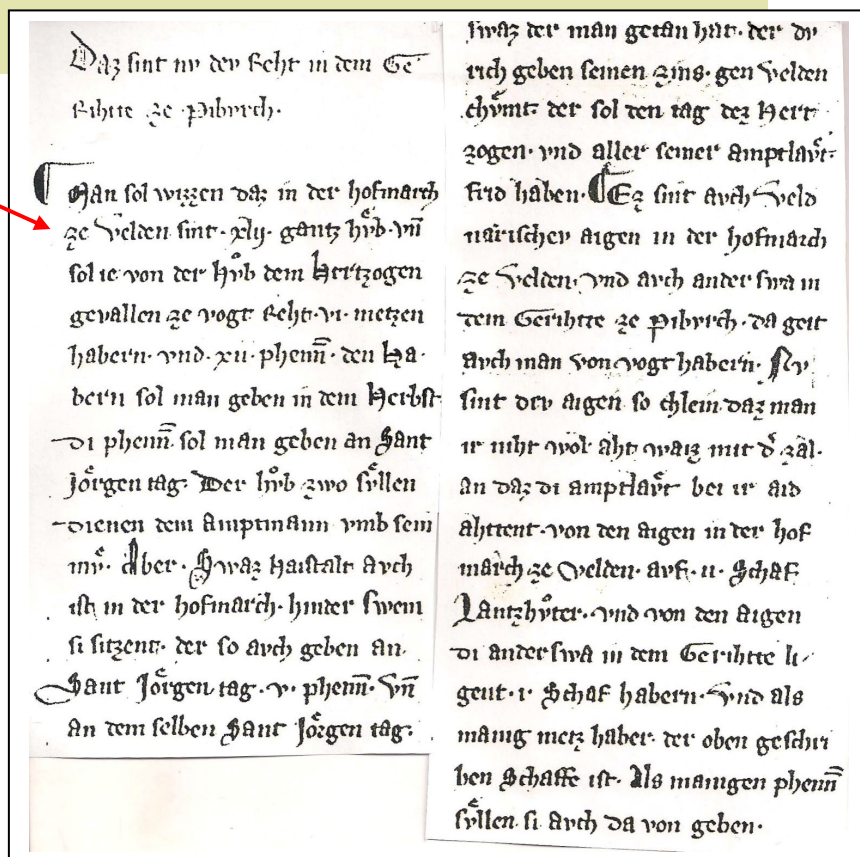 Daz sint nv dev Reht in dem Ge
Rihtte ze Pibvrch.
Man sol wizzen daz in der hofmarch
ze Velden sint. xlij. gantz hvͦb. vn̄
sol ie von der Hvͦb dem Hertzogen
gevallen ze vogt Reht. vi. metzen
habern. vnd. xii. phenn̄. den Ha-
bern sol man geben in dem Herbst
di phenn̄. sol man geben an Sant
Joͤrgen tag. Der hvͦb zwo svͤllen
dienen dem Amptmann vmb sein
mvͤ. Aber. Swaz Haistalt avch
ist in der hofmarch. hinder swem
si sitzent. der so avch geben an.
Sant Joͤrgen tag. v. phenn̄. Vn̄
an dem selben Sant Joͤrgen tag.
swaz der man getan hat. der dv
rich geben seinen zins. gen Velden
chvͤmt. der sol den tag dez Hert
zogen. vnd aller seiner amptlavͤt.
frid haben. Ez sint avch Veld
nærischev aigen in der hofmarch
ze Velden. vnd avch anderswa in
dem Gerihtte ze Pibvrch. da geit
avch man von vogt habern. Nv
sint dev aigen so chlein. daz man
ir niht wol aht waiz mit d̄ zal.
an daz di amptlavͤt bei ir aid
ahttent. von den aigen in der hof
march ze Velden. avf. ii. Schaf
Lantzhvͤter. vnd von den Aigen
di anderswa in dem Gerihtte li-
gent. i. Schaf habern. Vnd als
manig metz haber. der oben geschri
ben Schaffe ist. Als manigen phenn̄
svͤllen si avch da von geben.